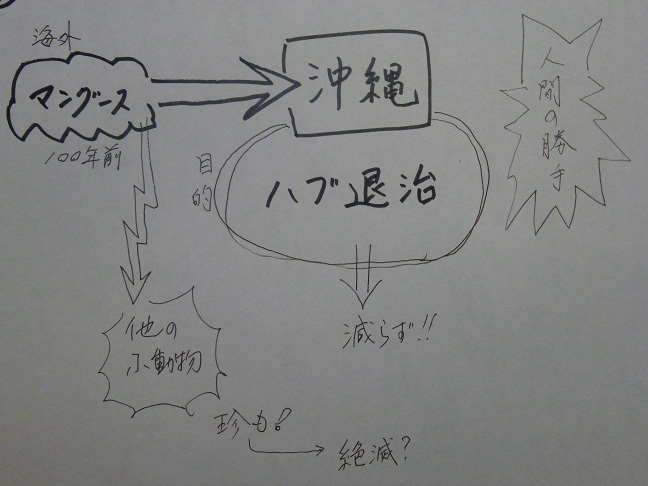 海外
マングース
100年前
沖縄
目的
ハブ退治
人間の勝手
減らず!!
他の
小動物
珍も!
絶滅?